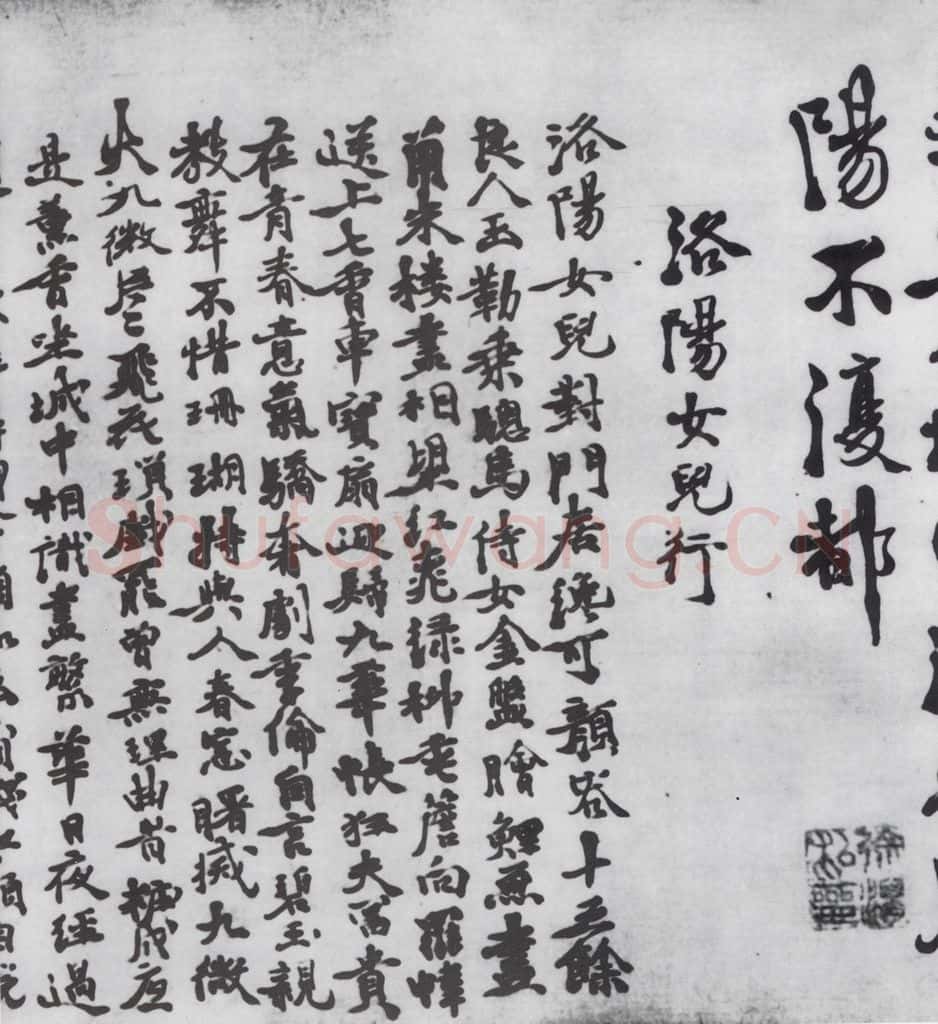 陽不復都
洛陽女兒行
洛陽女兒對門居纔可顏容十五餘
良人玉勒乘驄馬侍女金盤膾鯉魚畫
閣朱楼盡相望紅桃绿柳垂簷向羅幃
送上七香車寶扇迎歸九華帳狂夫富貴
在青春意氣驕奢劇季倫自言碧玉親
教舞不惜珊瑚持與人春窓曙滅九微
火九微片〻飛花璅戲罷曾無理曲時粧成祇
是薰香坐城中相識盡繁華日夜經過
Shufawang.CN